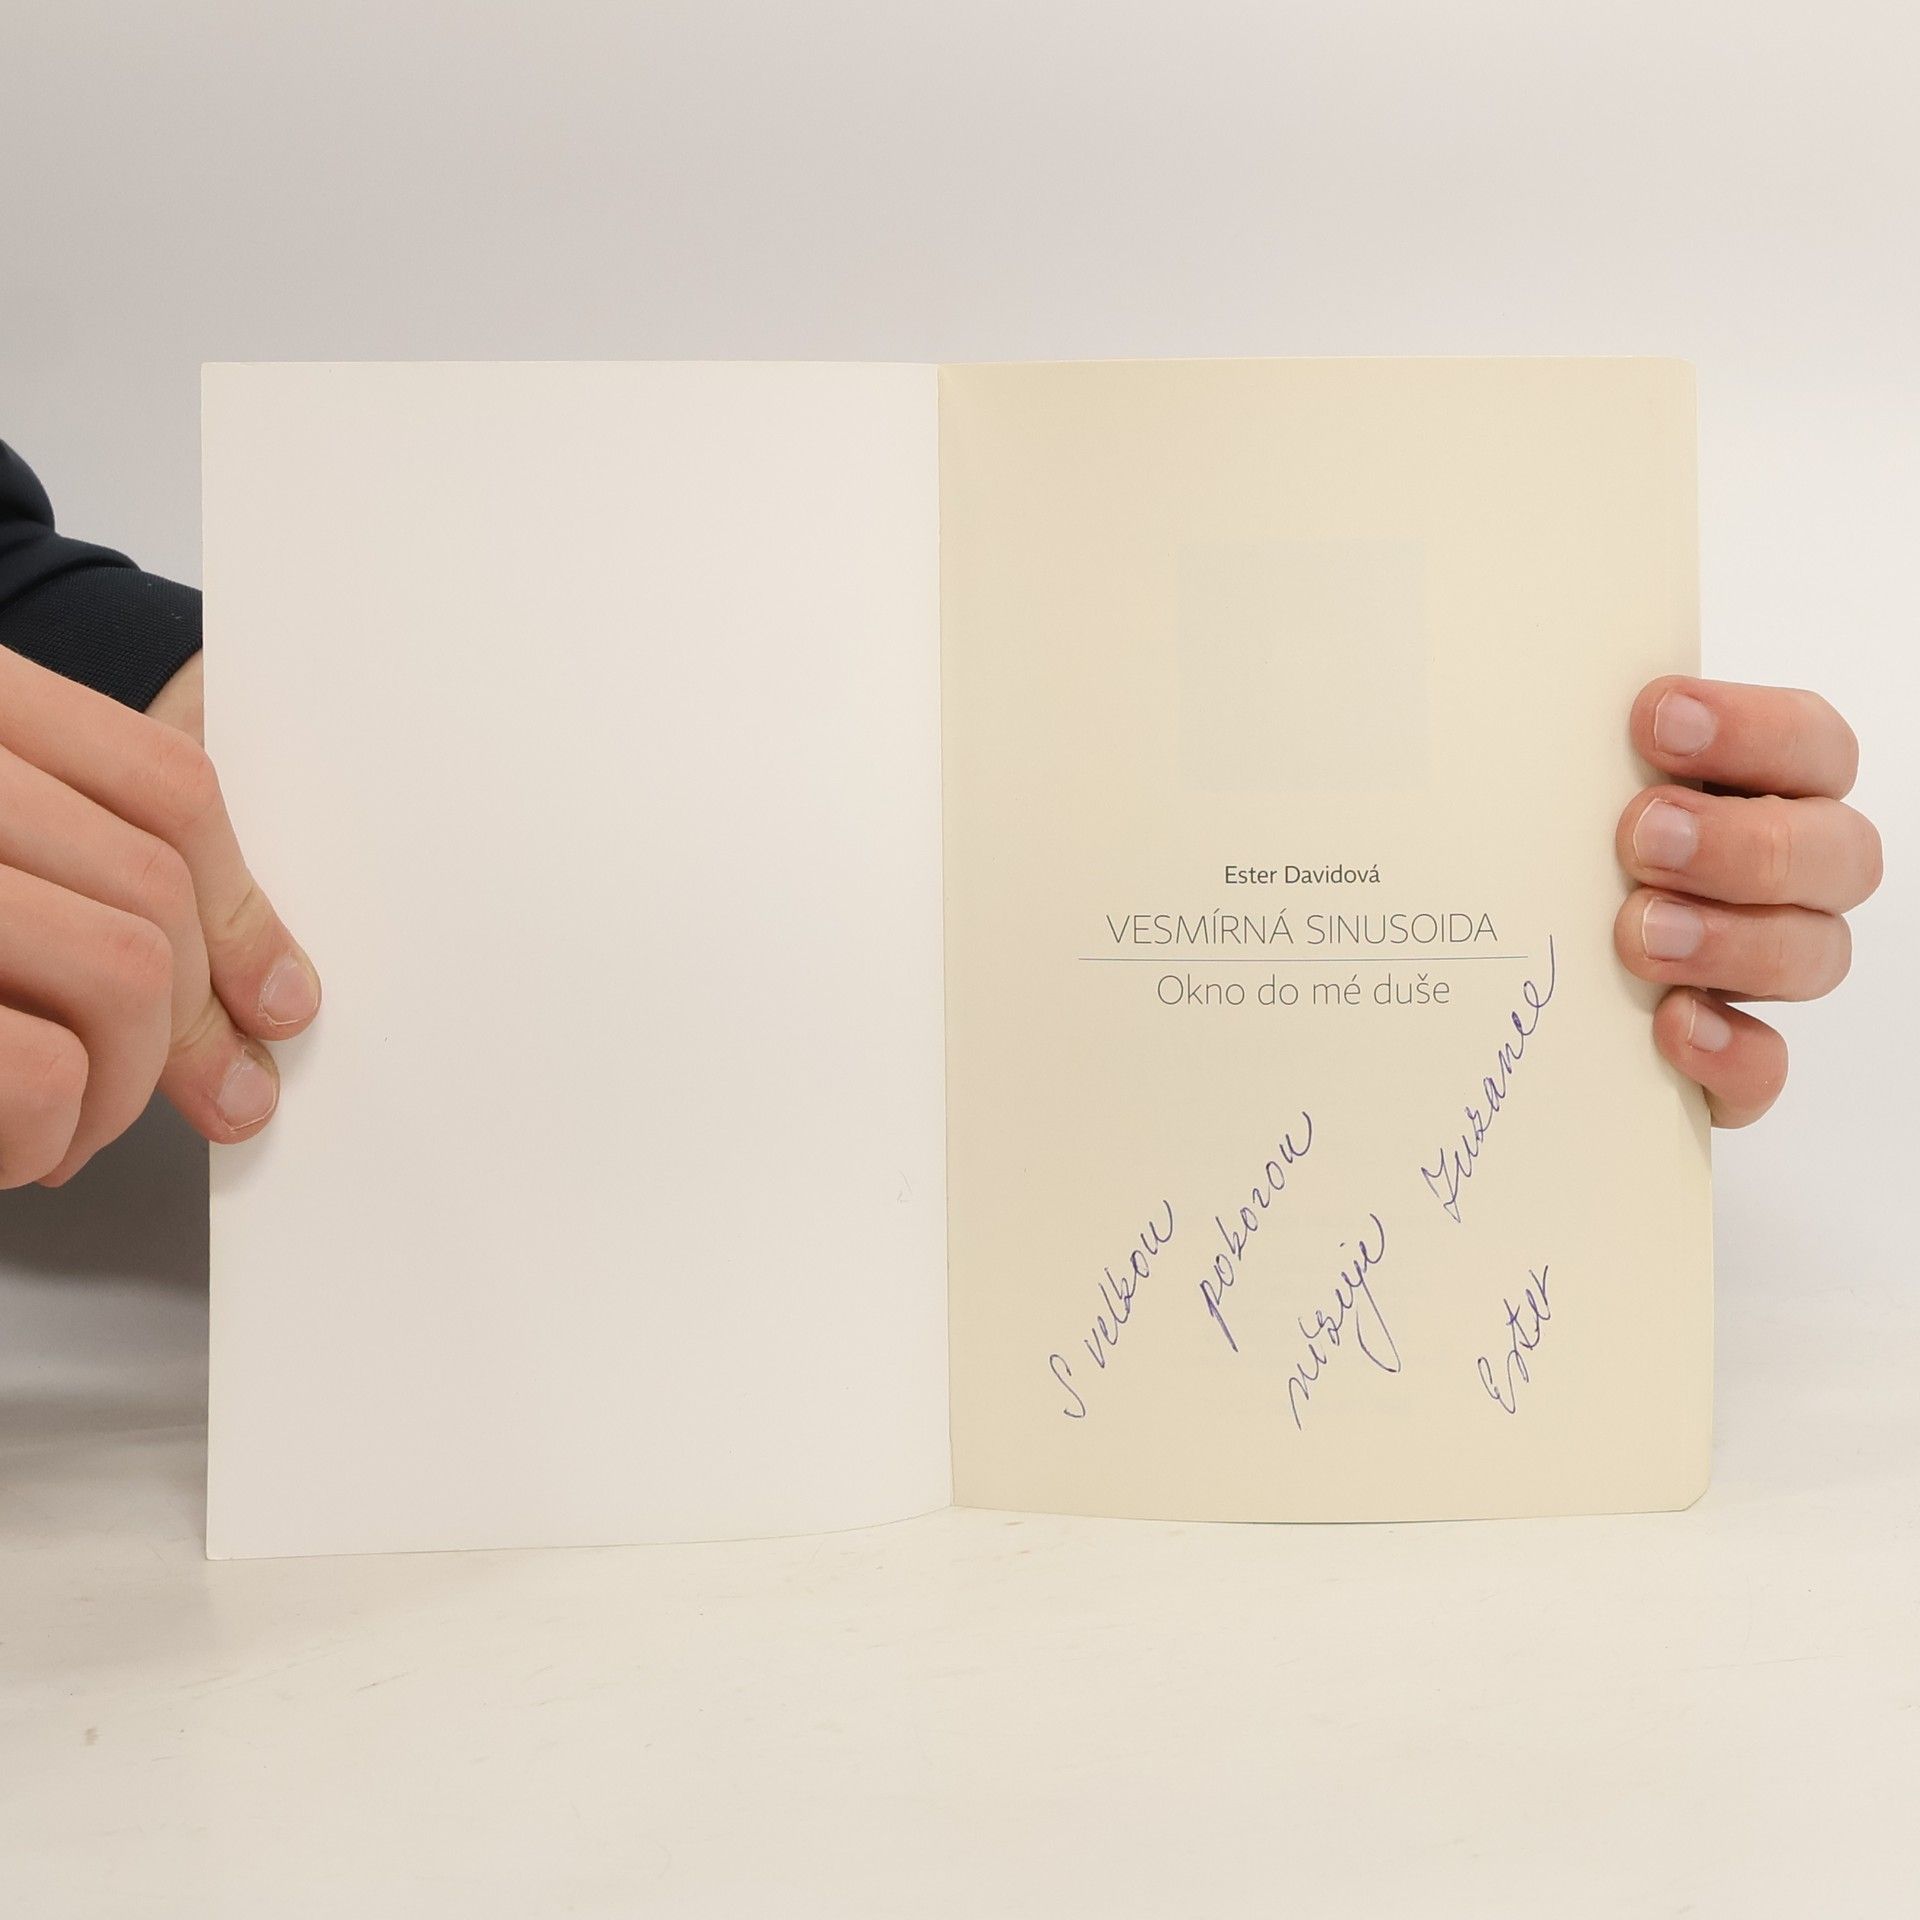 Ester Davidová
VESMÍRNÁ SINUSOIDA
Okno do mé duše
S velkou
pokorou
Zuzance
Ester